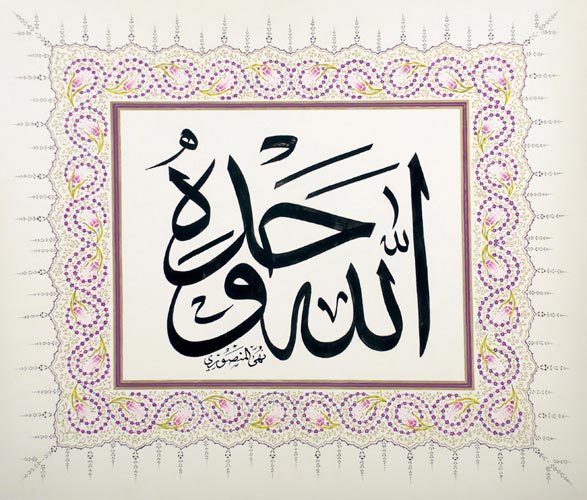 الله وحده
نهى المنصوري